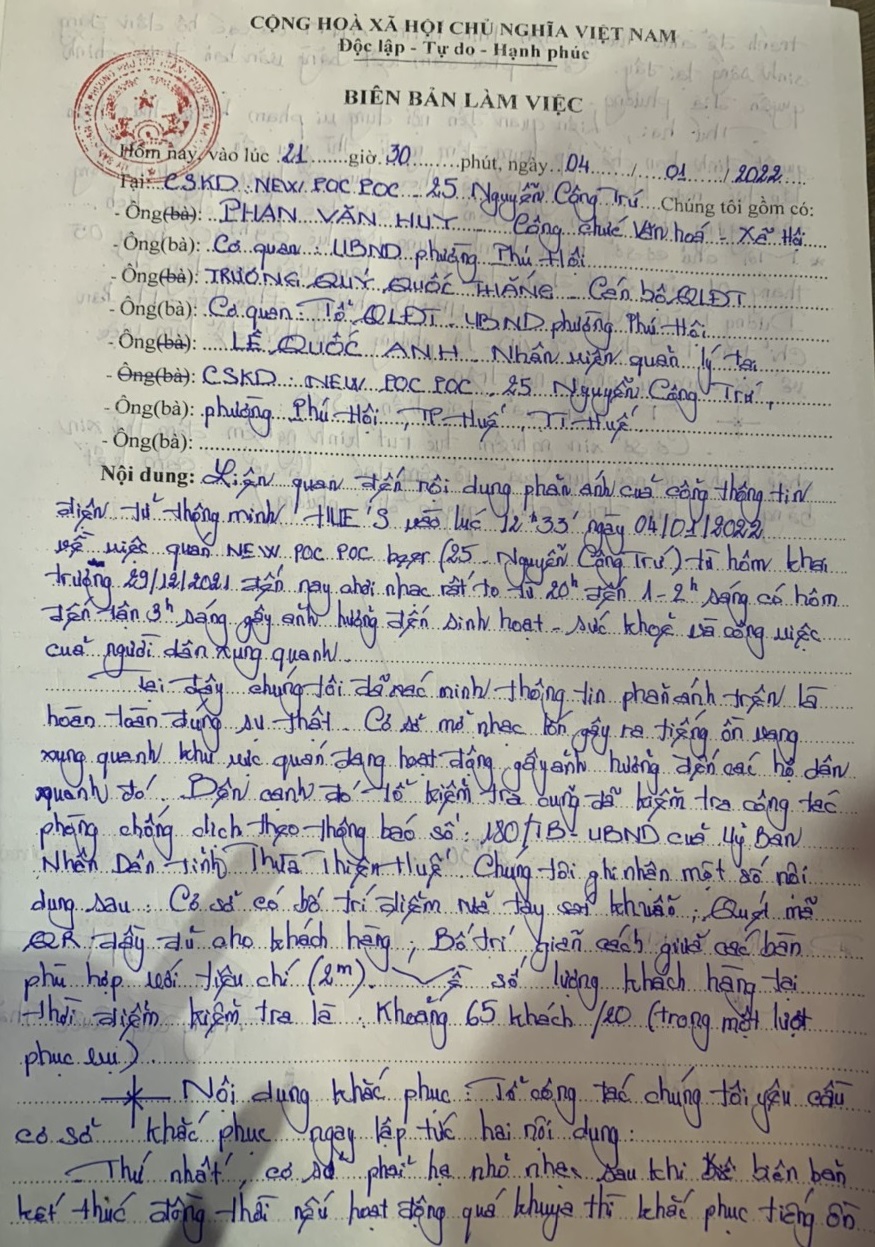 CỘNG HOÀ XÃ HỘI CHỦ NGHĨA VIỆT NAM
Độc lập - Tự do - Hạnh phúc
BIÊN BẢN LÀM VIỆC
Hôm nay, vào lúc 21 giờ 30 phút, ngày 04 / 01 / 2022
Tại: CSKD: NEW POC POC - 25 Nguyễn Công Trứ Chúng tôi gồm có:
- Ông(bà): PHAN VĂN HUY - Công chức Văn hoá - Xã Hội
- Ông(bà): Cơ quan: UBND phường Phú Hội
- Ông(bà): TRƯƠNG QUÝ QUỐC THẮNG - Cán bộ QLĐT
- Ông(bà): Cơ quan: Tổ QLĐT - UBND phường Phú Hội
- Ông(bà): LÊ QUỐC ANH - Nhân viên quản lý tại
- Ông(bà): CSKD: NEW POC POC - 25 Nguyễn Công Trứ,
- Ông(bà): phường Phú Hội, TP Huế, TT Huế
- Ông(bà):
Nội dung: Liên quan đến nội dung phản ánh của cổng thông tin
điện tử thông minh HUE'S vào lúc 12h33' ngày 04/01/2022
về việc quán NEW POC POC beer (25 - Nguyễn Công Trứ) từ hôm khai
trương 29/12/2021 đến nay chơi nhạc rất to từ 20h đến 1-2h sáng có hôm
đến tận 3h sáng gây ảnh hưởng đến sinh hoạt - sức khoẻ và công việc
của người dân xung quanh.
Tại đây chúng tôi đã xác minh thông tin phản ánh trên là
hoàn toàn đúng sự thật. Cơ sở mở nhạc lớn gây ra tiếng ồn vang
xung quanh khu vực quán đang hoạt động gây ảnh hưởng đến các hộ dân
quanh đó. Bên cạnh đó tổ kiểm tra cũng đã kiểm tra công tác
phòng chống dịch theo thông báo số: 180/TB-UBND của Uỷ Ban
Nhân Dân tỉnh Thừa Thiên Huế. Chúng tôi ghi nhận một số nội
dung sau: Cơ sở có bố trí điểm rửa tay sát khuẩn; Quét mã
QR đầy đủ cho khách hàng; Bố trí giãn cách giữa các bàn
phù hợp với tiêu chí (2m). Về số lượng khách hàng tại
thời điểm kiểm tra là: Khoảng 65 khách /20 (trong một lượt
phục vụ).
* Nội dung khắc phục: Tổ công tác chúng tôi yêu cầu
cơ sở khắc phục ngay lập tức hai nội dung:
- Thứ nhất, cơ sở phải hạ nhỏ nhạc sau khi biên bản
kết thúc đồng thời nếu hoạt động quá khuya thì khắc phục tiếng ồn